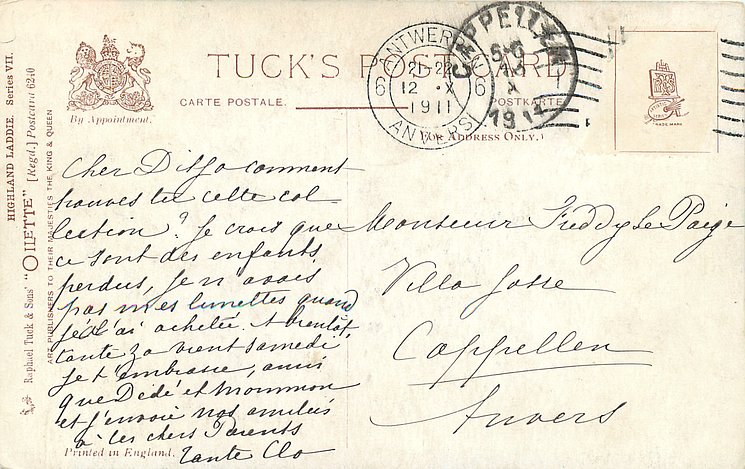 HIGHLAND LADDIE. Series VII.
"OILETTE" [Regd.] Postcard 6240
Raphael Tuck & Sons'
ART PUBLISHERS TO THEIR MAJESTIES THE KING & QUEEN
By Appointment.
TUCK'S POST CARD
CARTE POSTALE.
POSTKARTE
(For Address Only.)
ANTWERPEN
6 21-22 6
12 X
1911
ANVERS
CAPPELLEN
5-6
13
X
1911
TRADE MARK
Cher Didjo comment
trouves tu cette col-
lection? Je crois que
ce sont des enfants
perdus, je n'avais
pas mes lunettes quand
je l'ai achetée. A bientôt,
tante Za vient samedi,
je t'embrasse, ainsi
que Dédé et Mommon
et j'envoie nos amitiés
à tes chers Parents
Tante Clo
Monsieur Freddy Le Paige
Villa Josse
Cappellen
Anvers
Printed in England.